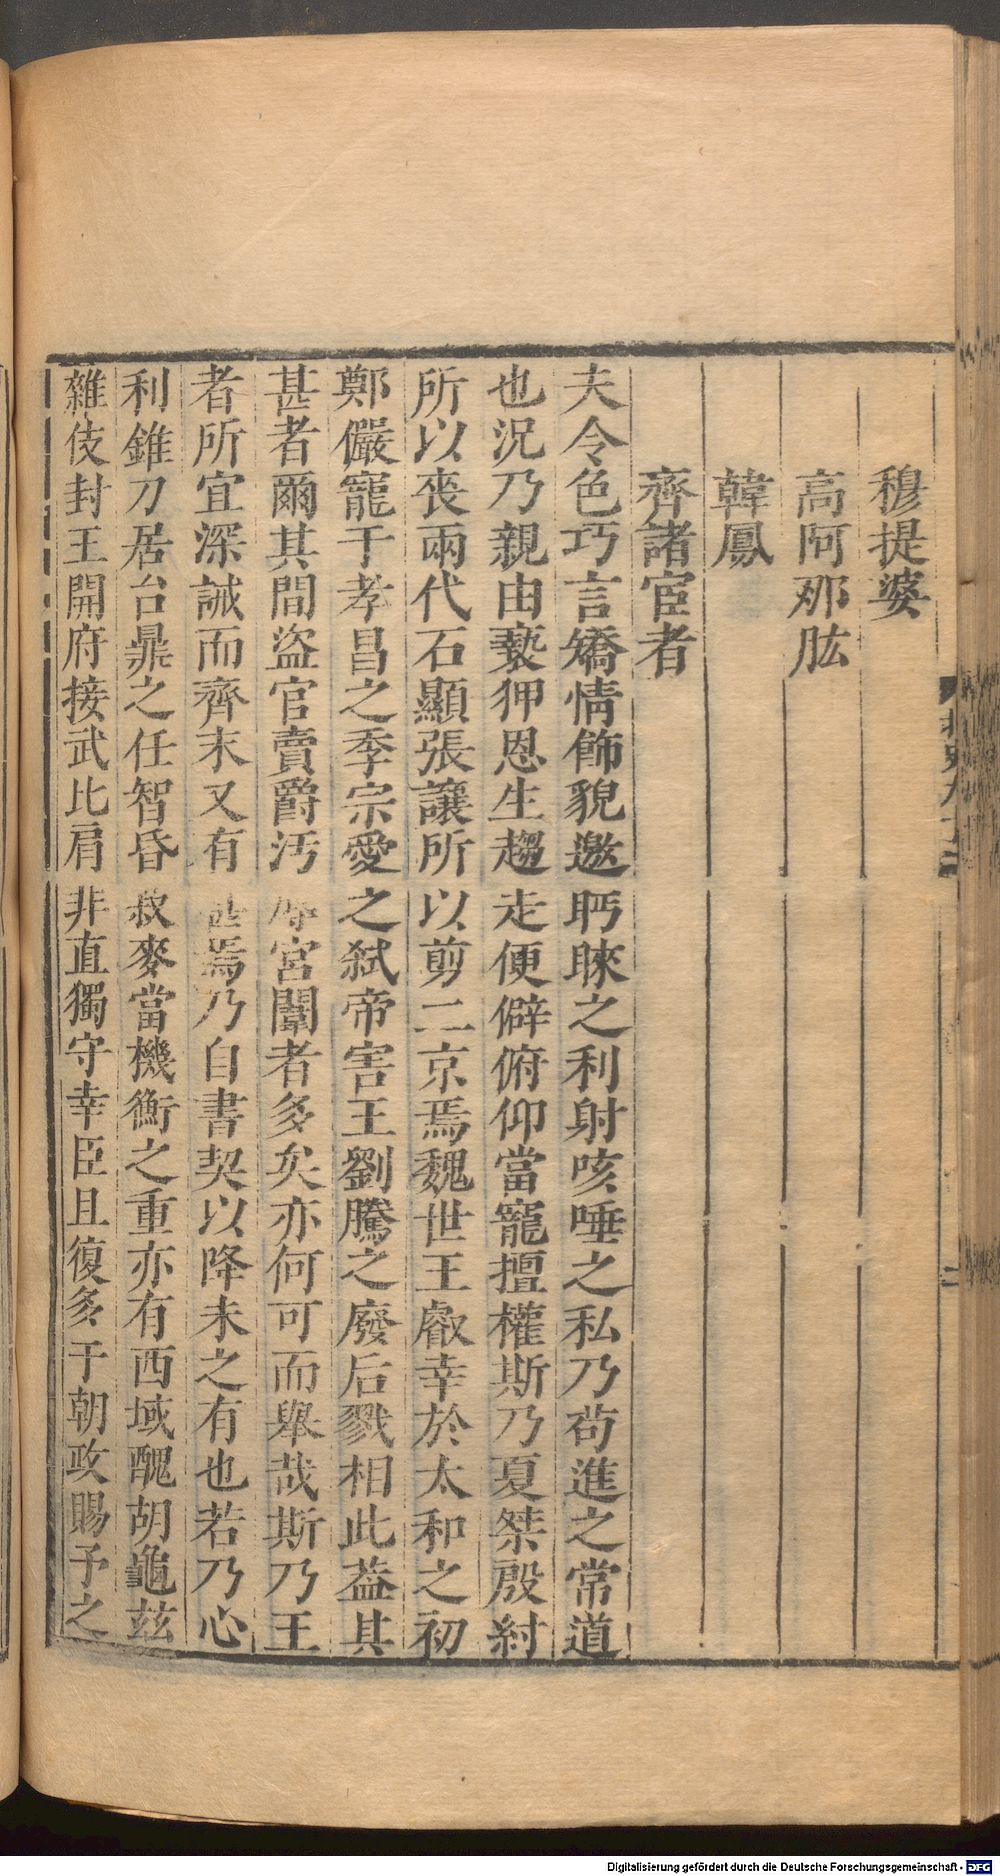 穆提婆
高阿那肱
韓鳳
齊諸宦者
夫令色巧言矯情飾貌邀眄睞之利射咳唾之私乃茍進之常道
也況乃親由褻狎恩生趨走便僻俯仰當寵擅權斯乃夏桀殷紂
所以喪兩代石顯張讓所以剪二京焉魏世王叡幸於太和之初
鄭儼寵于孝昌之季宗愛之弒帝害王劉騰之廢后戮相此葢其
甚者爾其間盜官賣爵汚辱宮闈者多矣亦何可而舉哉斯乃王
者所宜深誡而齊末又有甚焉乃自書契以降未之有也若乃心
利錐刀居台鼎之任智昏菽麥當機衡之重亦有西域醜胡龜玆
雜伎封王開府接武比肩非直獨守幸臣且復多于朝政賜予之
Digitalisierung gefördert durch die Deutsche Forschungsgemeinschaft - DFG